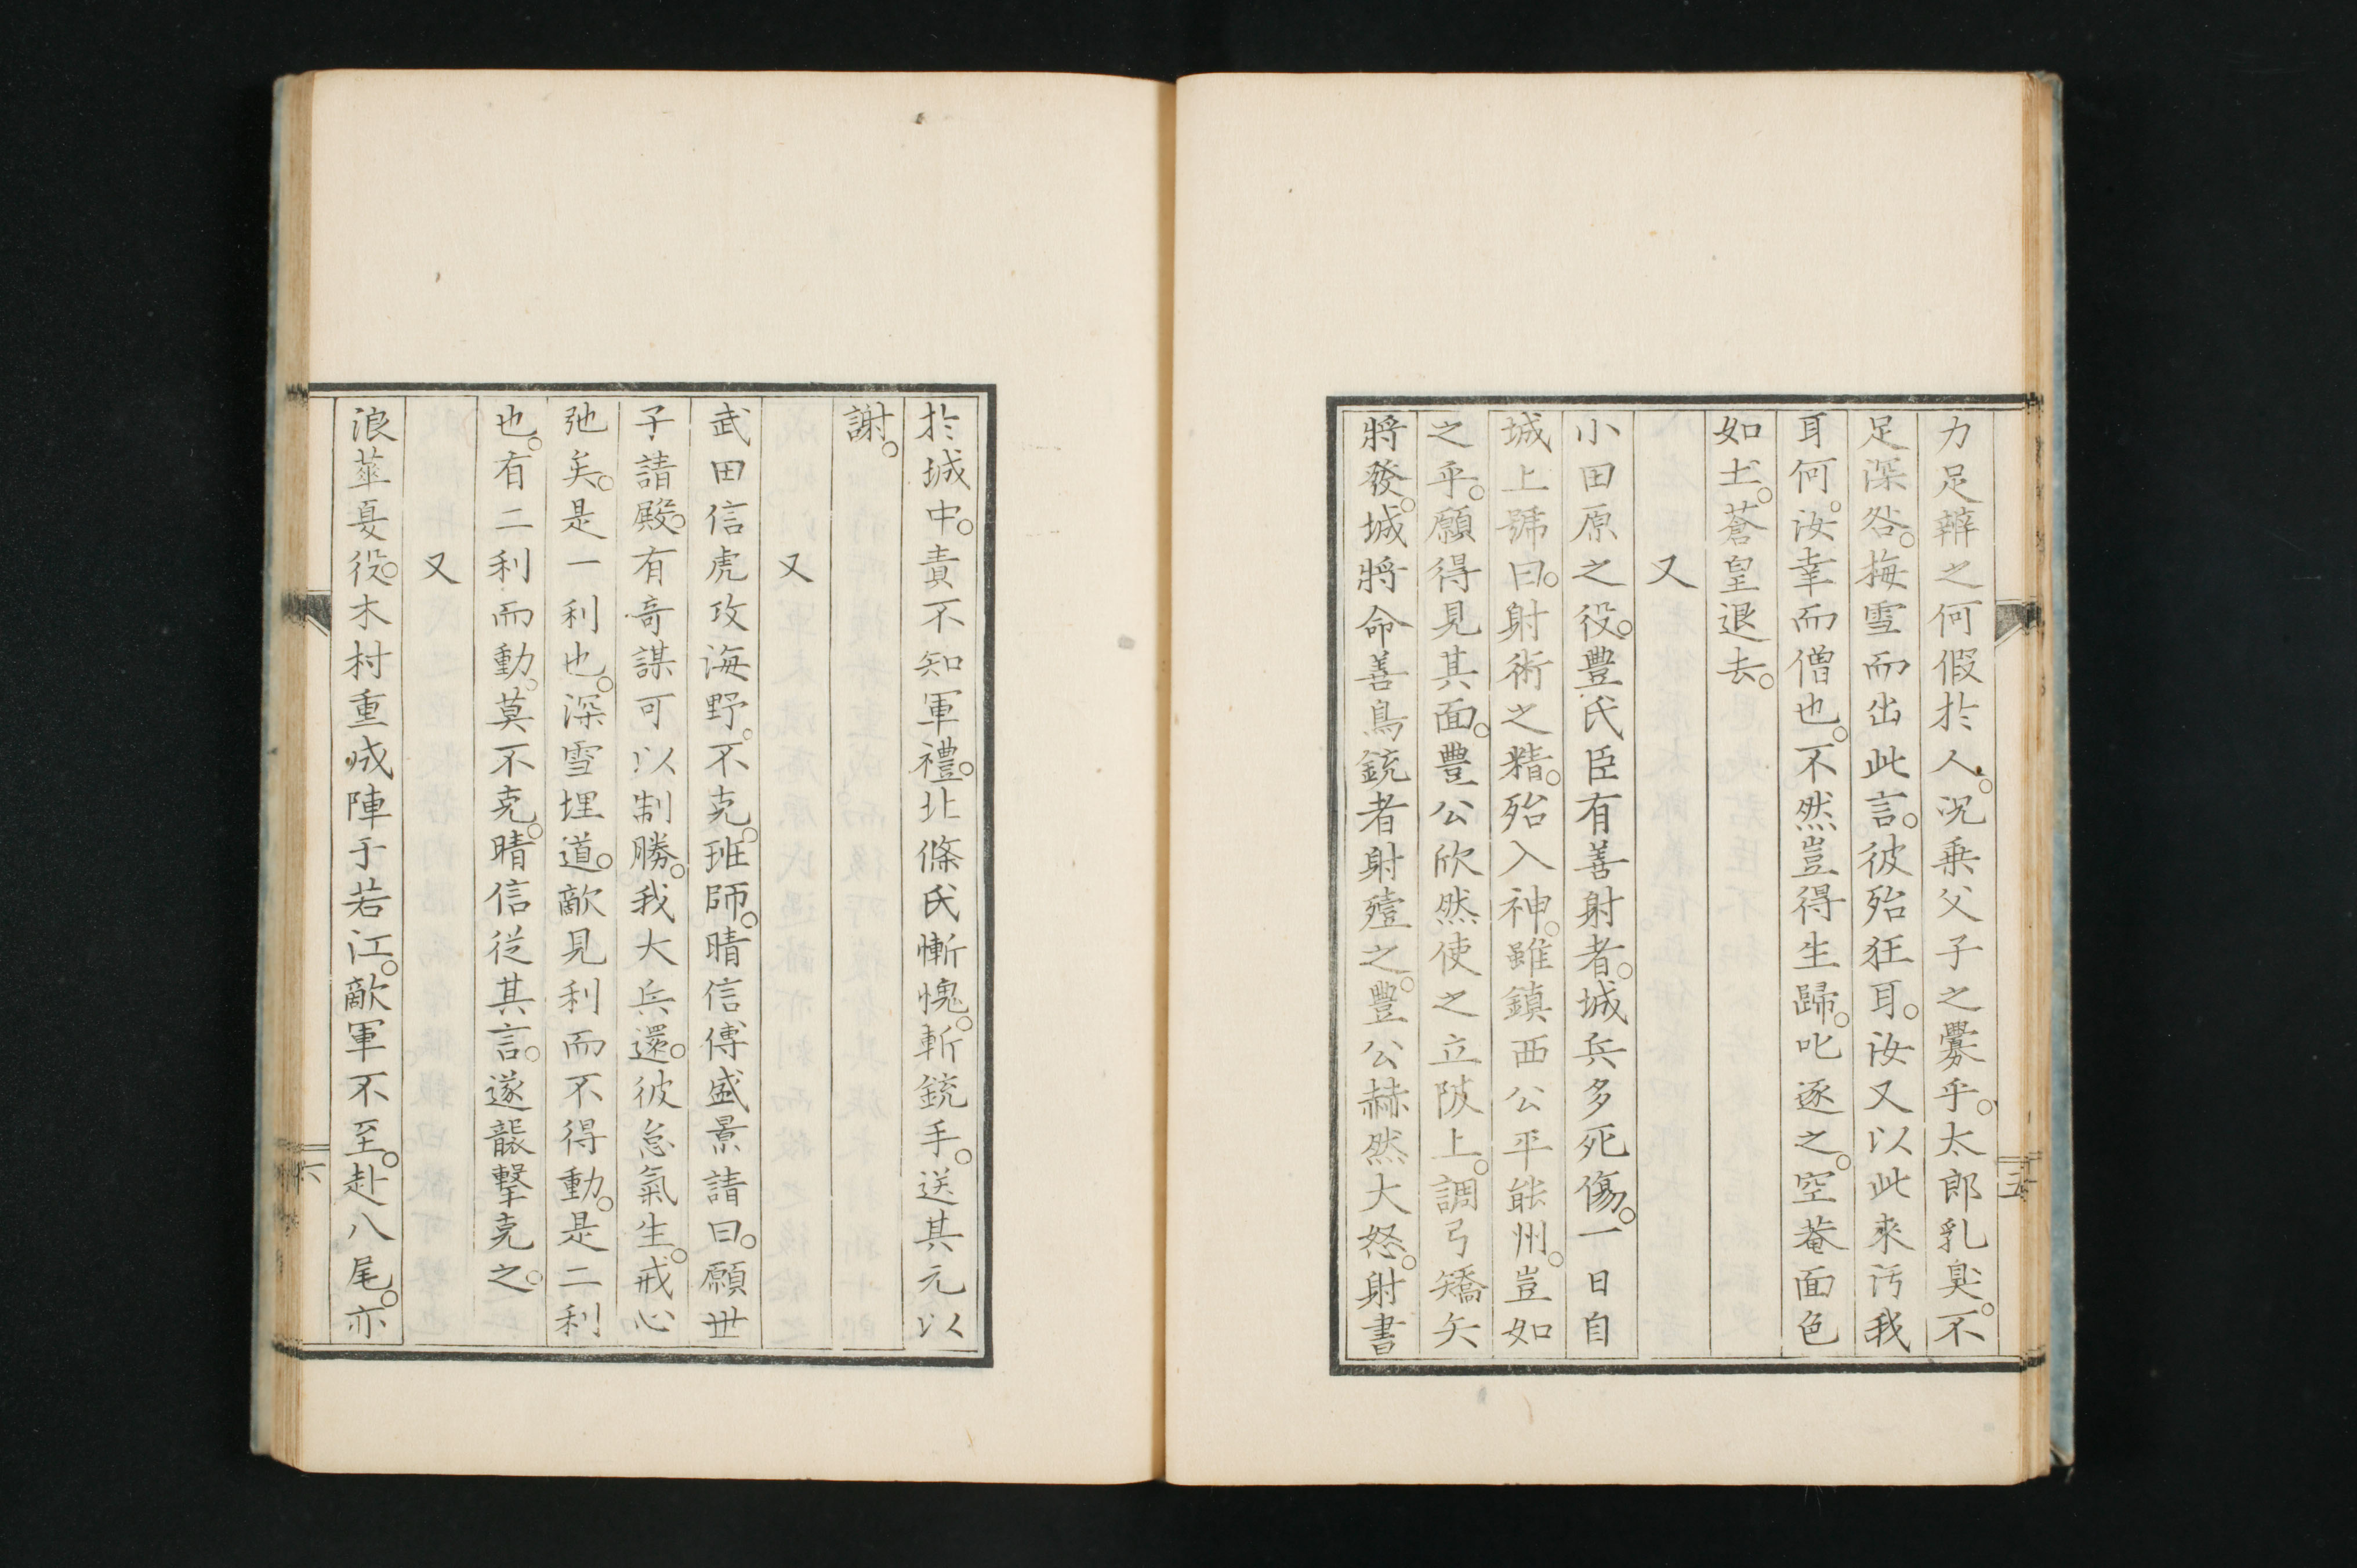 力足辨之何假於人。況乗父子之釁乎。太郎乳臭。不
足深咎。梅雪而出此言。彼殆狂耳。汝又以此来汚我
耳何。汝幸而僧也。不然豈得生歸。叱逐之。空菴面色
如土。蒼皇退去。
又
小田原之役。豊氏臣有善射者。城兵多死傷。一日自
城上號曰。射術之精。殆入神。雖鎮西公平能州。豈如
之乎。願得見其面。豊公欣然使之立陂上。調弓矯矢
將發。城將命善鳥銃者射殪之。豊公赫然大怒。射書
五
於城中。責不知軍禮。北條氏慚愧。斬銃手。送其元以
謝。
又
武田信虎攻海野。不克。班師。晴信傅盛景請曰。願世
子請殿。有奇謀可以制勝。我大兵還。彼怠氣生。戒心
弛矣。是一利也。深雪埋道。敵見利而不得動。是二利
也。有二利而動。莫不克。晴信從其言。遂襲撃克之。
又
浪華夏役。木村重成陣于若江。敵軍不至。赴八尾。亦
六